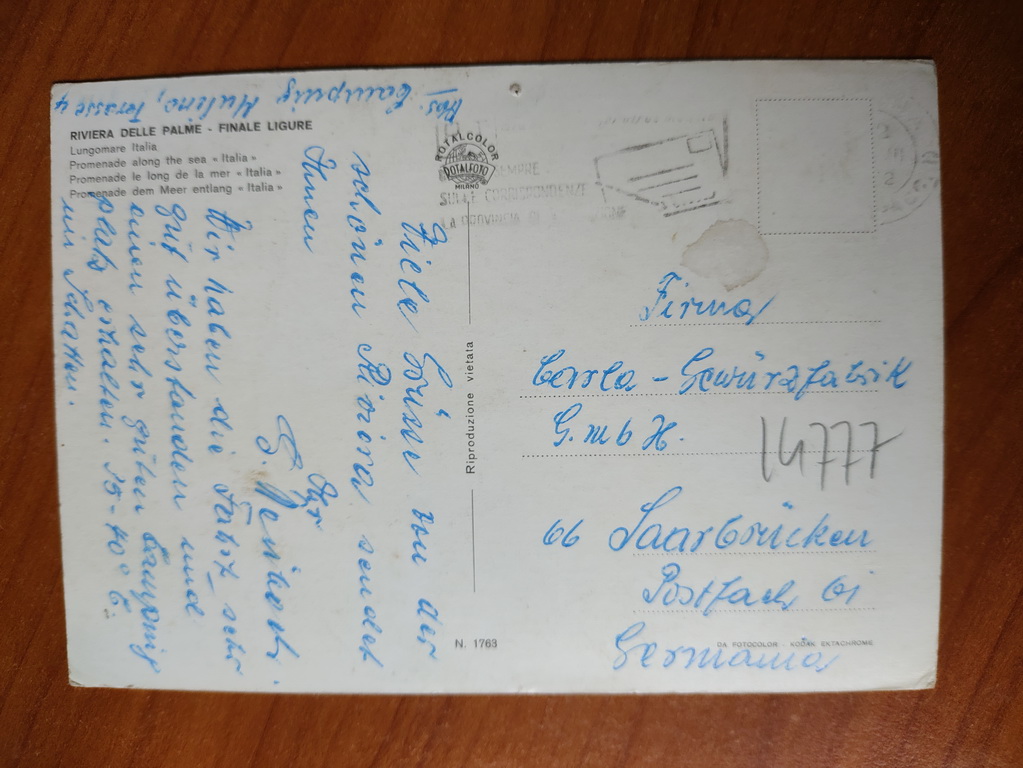 RIVIERA DELLE PALME - FINALE LIGURE
Lungomare Italia
Promenade along the sea « Italia »
Promenade le long de la mer « Italia »
Promenade dem Meer entlang « Italia »
Abs. Camping Mulino, Terasse 4
Viele Grüsse von der
schönen Riviera sendet
Ihnen
Ihr
G.
Wir haben die Fahrt sehr
gut überstanden und
einen sehr guten Camping
platz erhalten. 35-40° C
im Schatten.
ROTALCOLOR
ROTALFOTO
MILANO
SULLE CORRISPONDENZE
LA PROVINCIA DI
Riproduzione vietata
N. 1763
Firma
Gewürzfabrik
G.m b H.
14777
66 Saarbrücken
Postfach 61
Germania
DA FOTOCOLOR - KODAK EKTACHROME